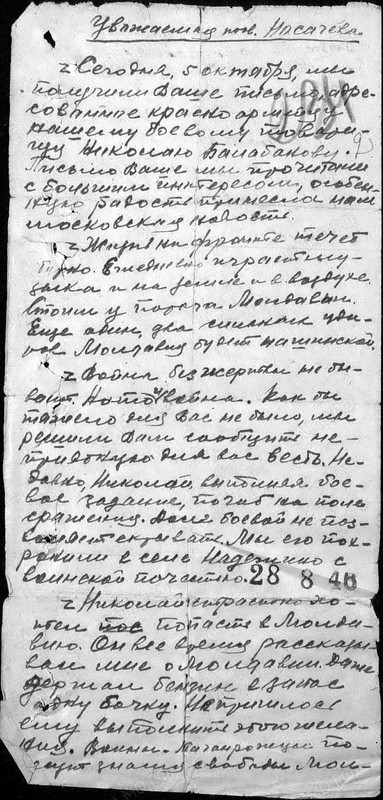 Уважаемая тов. Носачева.
Сегодня, 5 октября, мы
получили Ваше письмо, адре-
сованное красноармейцу
нашему боевому товари-
щу Николаю Балабанову.
Письмо Ваше мы прочитали
с большим интересом, особен-
ную радость принесла нам
московская новость.
Жизнь на фронте течет
бурно. Ежедневно играет му-
зыка и на земле и в воздухе.
Стоим у порога Молдавии.
Еще один, два сильных уда-
ров Молдавия будет нашинской.
Война без жертвы не бы-
вает. На то и война. Как бы
тяжело для Вас не было, мы
решили Вам сообщить не-
приятную для вас весть. Не-
давно, Николай, выполняя бое-
вое задание, погиб на поле
сражения. Долг боевой не поз-
воляет скрывать. Мы его пох-
ронили в селе Надежино с
воинской почестью. 28 8 46
Николай страстно хо-
тел попасть в Молда-
вию. Он все время рассказы-
вал мне о Молдавии. Даже
держал бензин в запас
одну бочку. Не пришлось
ему выполнить этого жела-
ния. Воины-
знамя свободы Мол-